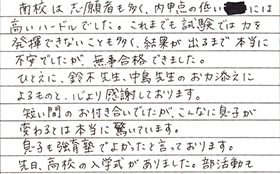 南校は志願者も多く、内申点の低い には
高いハードルでした。これまでも試験では力を
発揮できないことも多く、結果が出るまで本当に
不安でしたが、無事合格できました。
ひとえに、鈴木先生、中島先生のお力添えに
よるものと、心より感謝しております。
短い間のお付き合いでしたが、こんなに息子が
変わるとは本当に驚いています。
息子も強育塾でよかったと言っております。
先日、高校の入学式がありました。部活動も